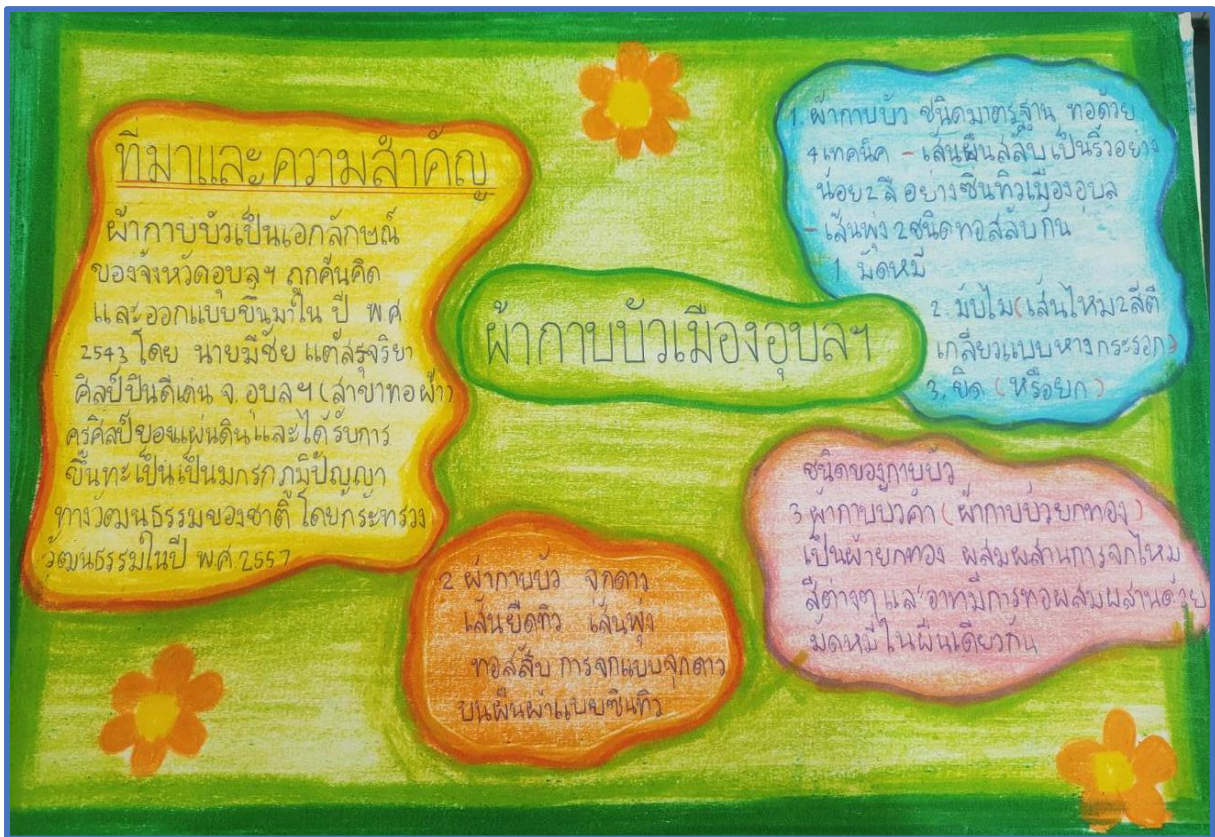 ที่มาและความสำคัญ
ผ้ากาบบัวเป็นเอกลักษณ์
ของจังหวัดอุบลฯ ถูกค้นคิด
และออกแบบขึ้นมาใน ปี พ.ศ
2543 โดย นายมีชัย แต้สุจริยา
ศิลป์ปินดีเด่น จ.อุบลฯ (สาขาทอผ้า)
ครูศิลป์ของแผ่นดินและได้รับการ
ขึ้นทะเป็นเป็นมกรกภูมิปัญญา
ทางวัฒนธรรมของชาติ โดยกระทรวง
วัฒนธรรมในปี พ.ศ.2557
ผ้ากาบบัวเมืองอุบลฯ
1. ผ้ากาบบัว ชนิดมาตรฐาน ทอด้วย
4เทคนิค - เส้นยืนสลับเป็นริ้วอย่าง
น้อย2สี อย่างซิ่นทิวเมืองอุบล
- เส้นพุ่ง 2ชนิดทอสลับกัน
1. มัดหมี่
2. มับไม (เส้นไหม2สีตี
เกลียวแบบหางกระรอก)
3. ขิด (หรือยก)
2 ผ้ากาบบัว จกดาว
เส้นยืดทิว เส้นพุ่ง
ทอสลับ การจกแบบจกดาว
บนผืนผ้าแบบซิ่นทิว
ชนิดของกาบบัว
3 ผ้ากาบบัวคำ (ผ้ากาบบัวยกทอง)
เป็นผ้ายกทอง ผสมผสานการจกไหม
สีต่างๆ และอาทมีการทอผสมผสานด้วย
มัดหมี่ในผืนเดียวกัน